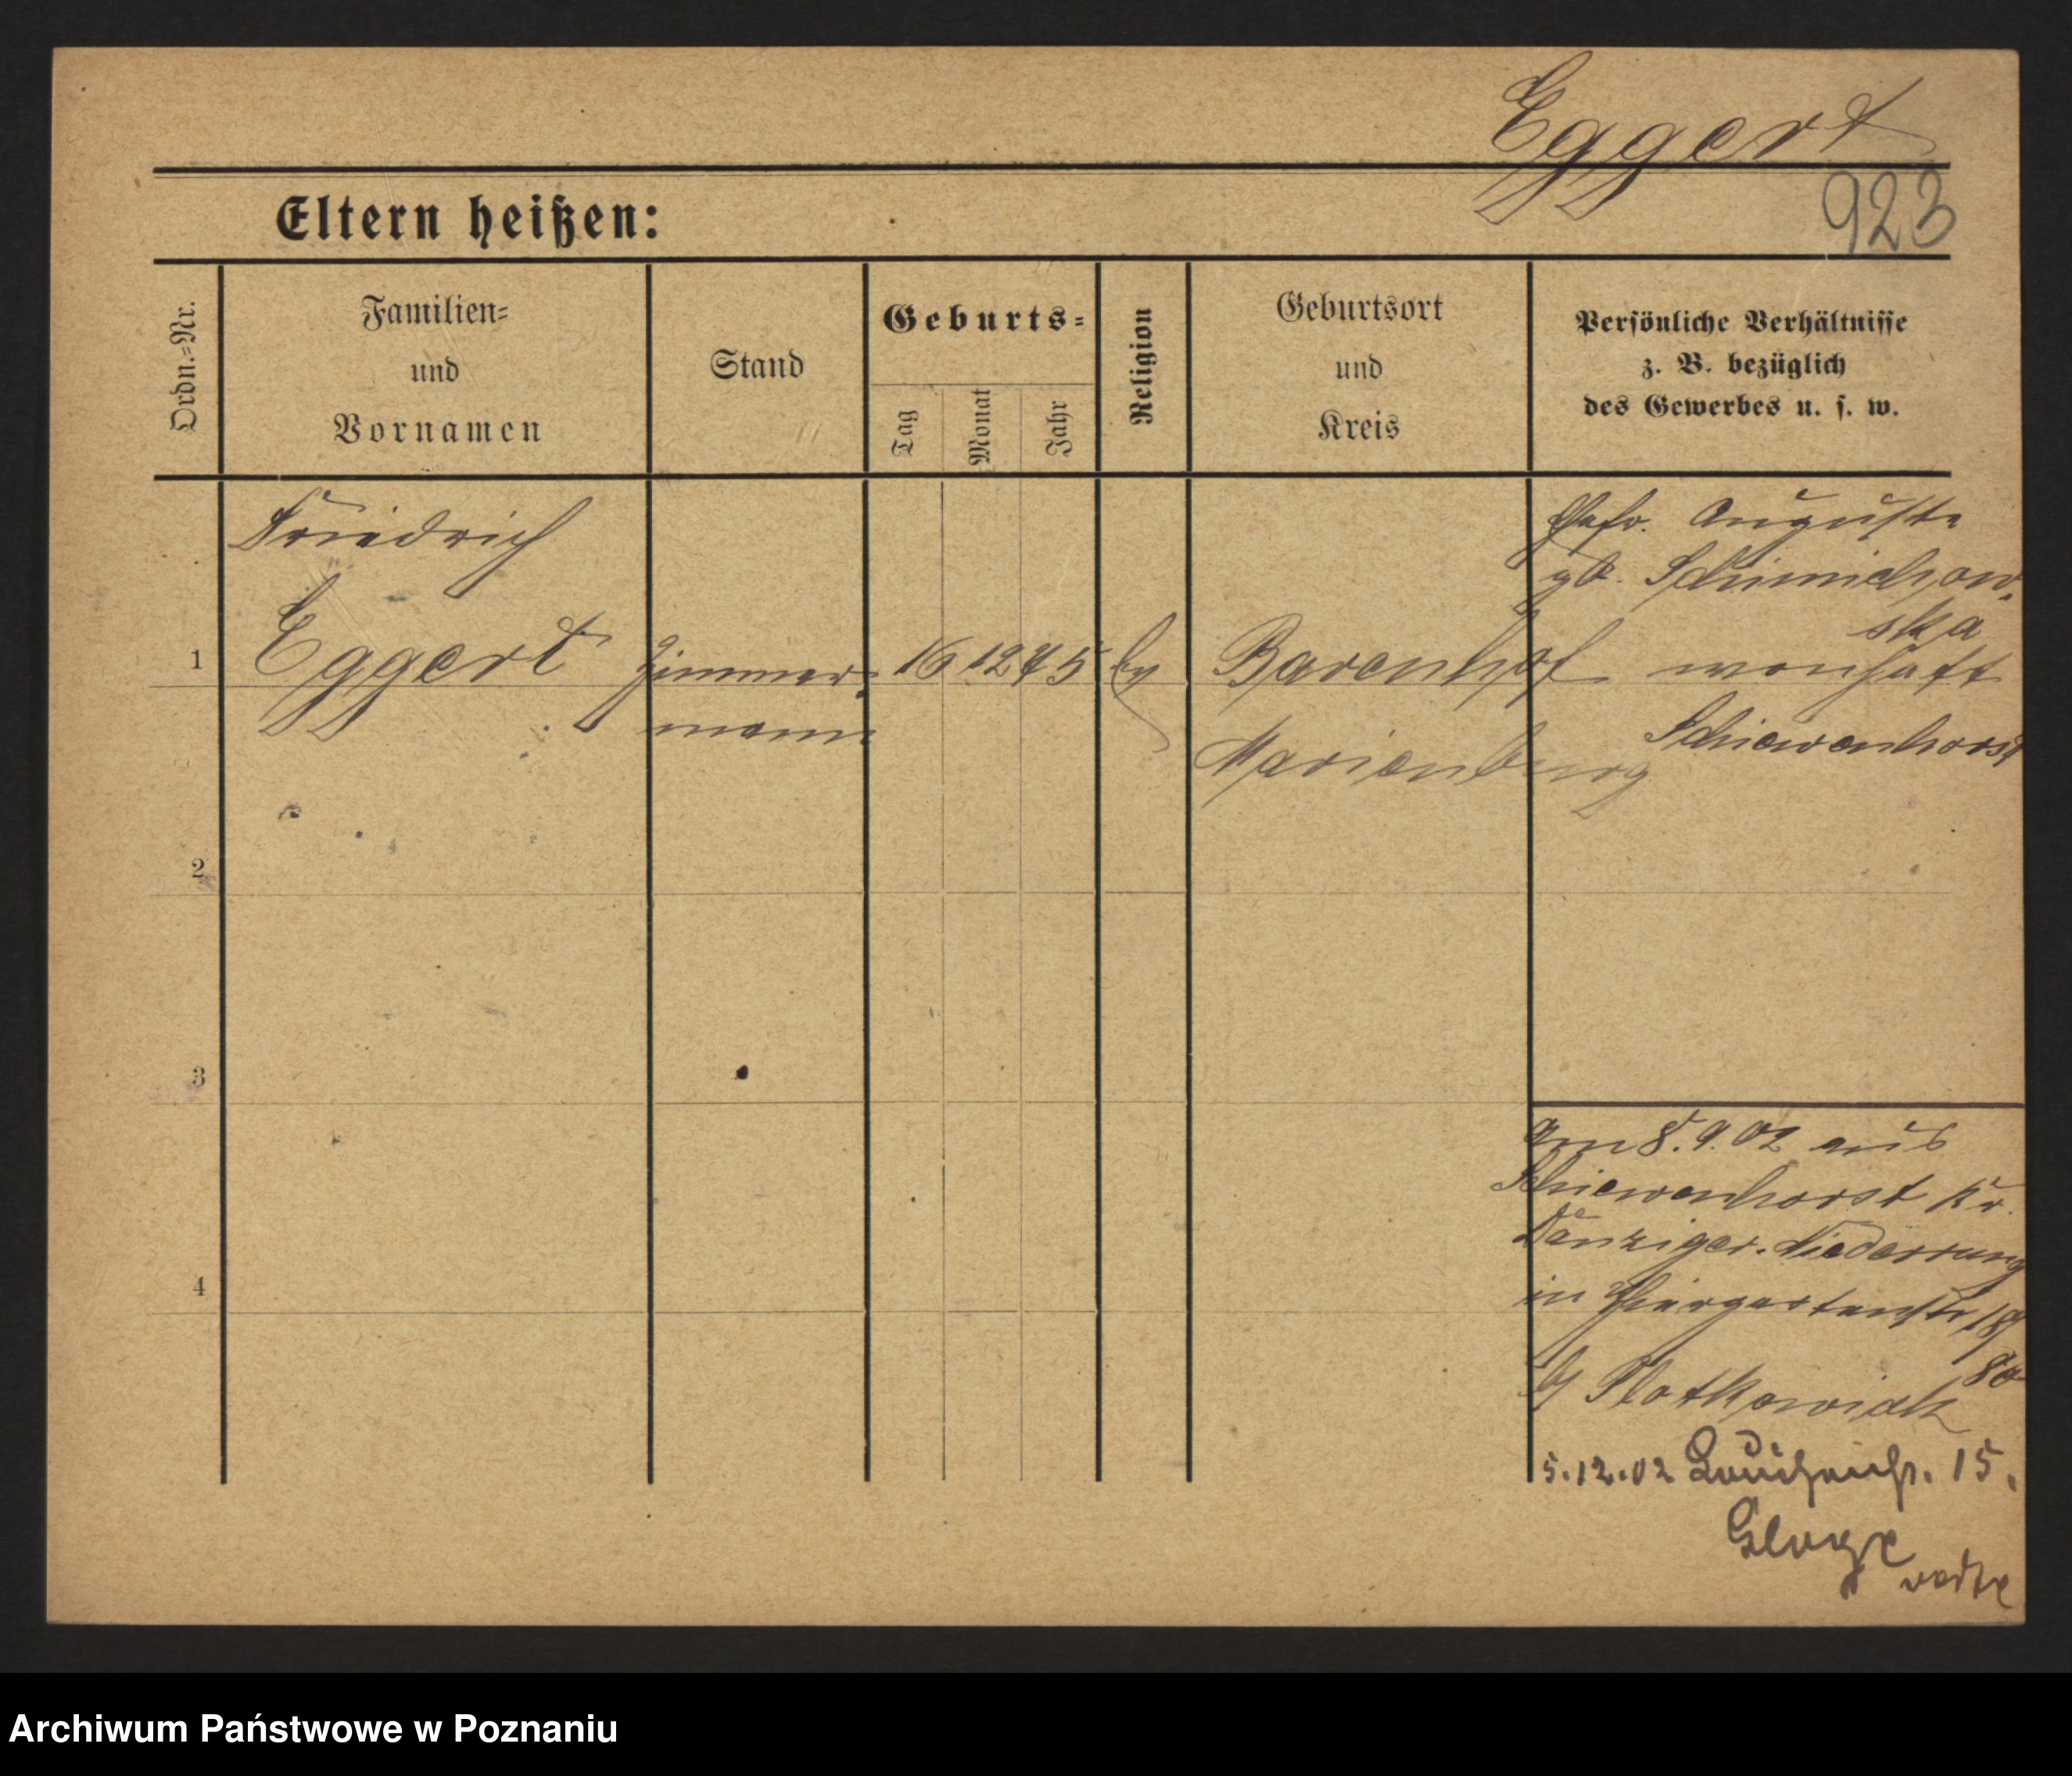 Eggert
923
Eltern heißen:
Ordn.-Nr.
Familien-
und
Vornamen
Stand
Geburts-
Tag
Monat
Jahr
Religion
Geburtsort
und
Kreis
Persönliche Verhältnisse
z. B. bezüglich
des Gewerbes u. s. w.
1
Friedrich
Eggert
Zimmer-
mann
16 12 75
Barenhof
Marienburg
Ehefr. Auguste
gb.
ska
wonhaft
Schiewenhorst
2
3
4
Am 8.9.02 aus
Schiewenhorst Kr.
Danziger-Niederrung
in Thiergartenstr 18/
b/
5.12.02 15.
Archiwum Państwowe w Poznaniu